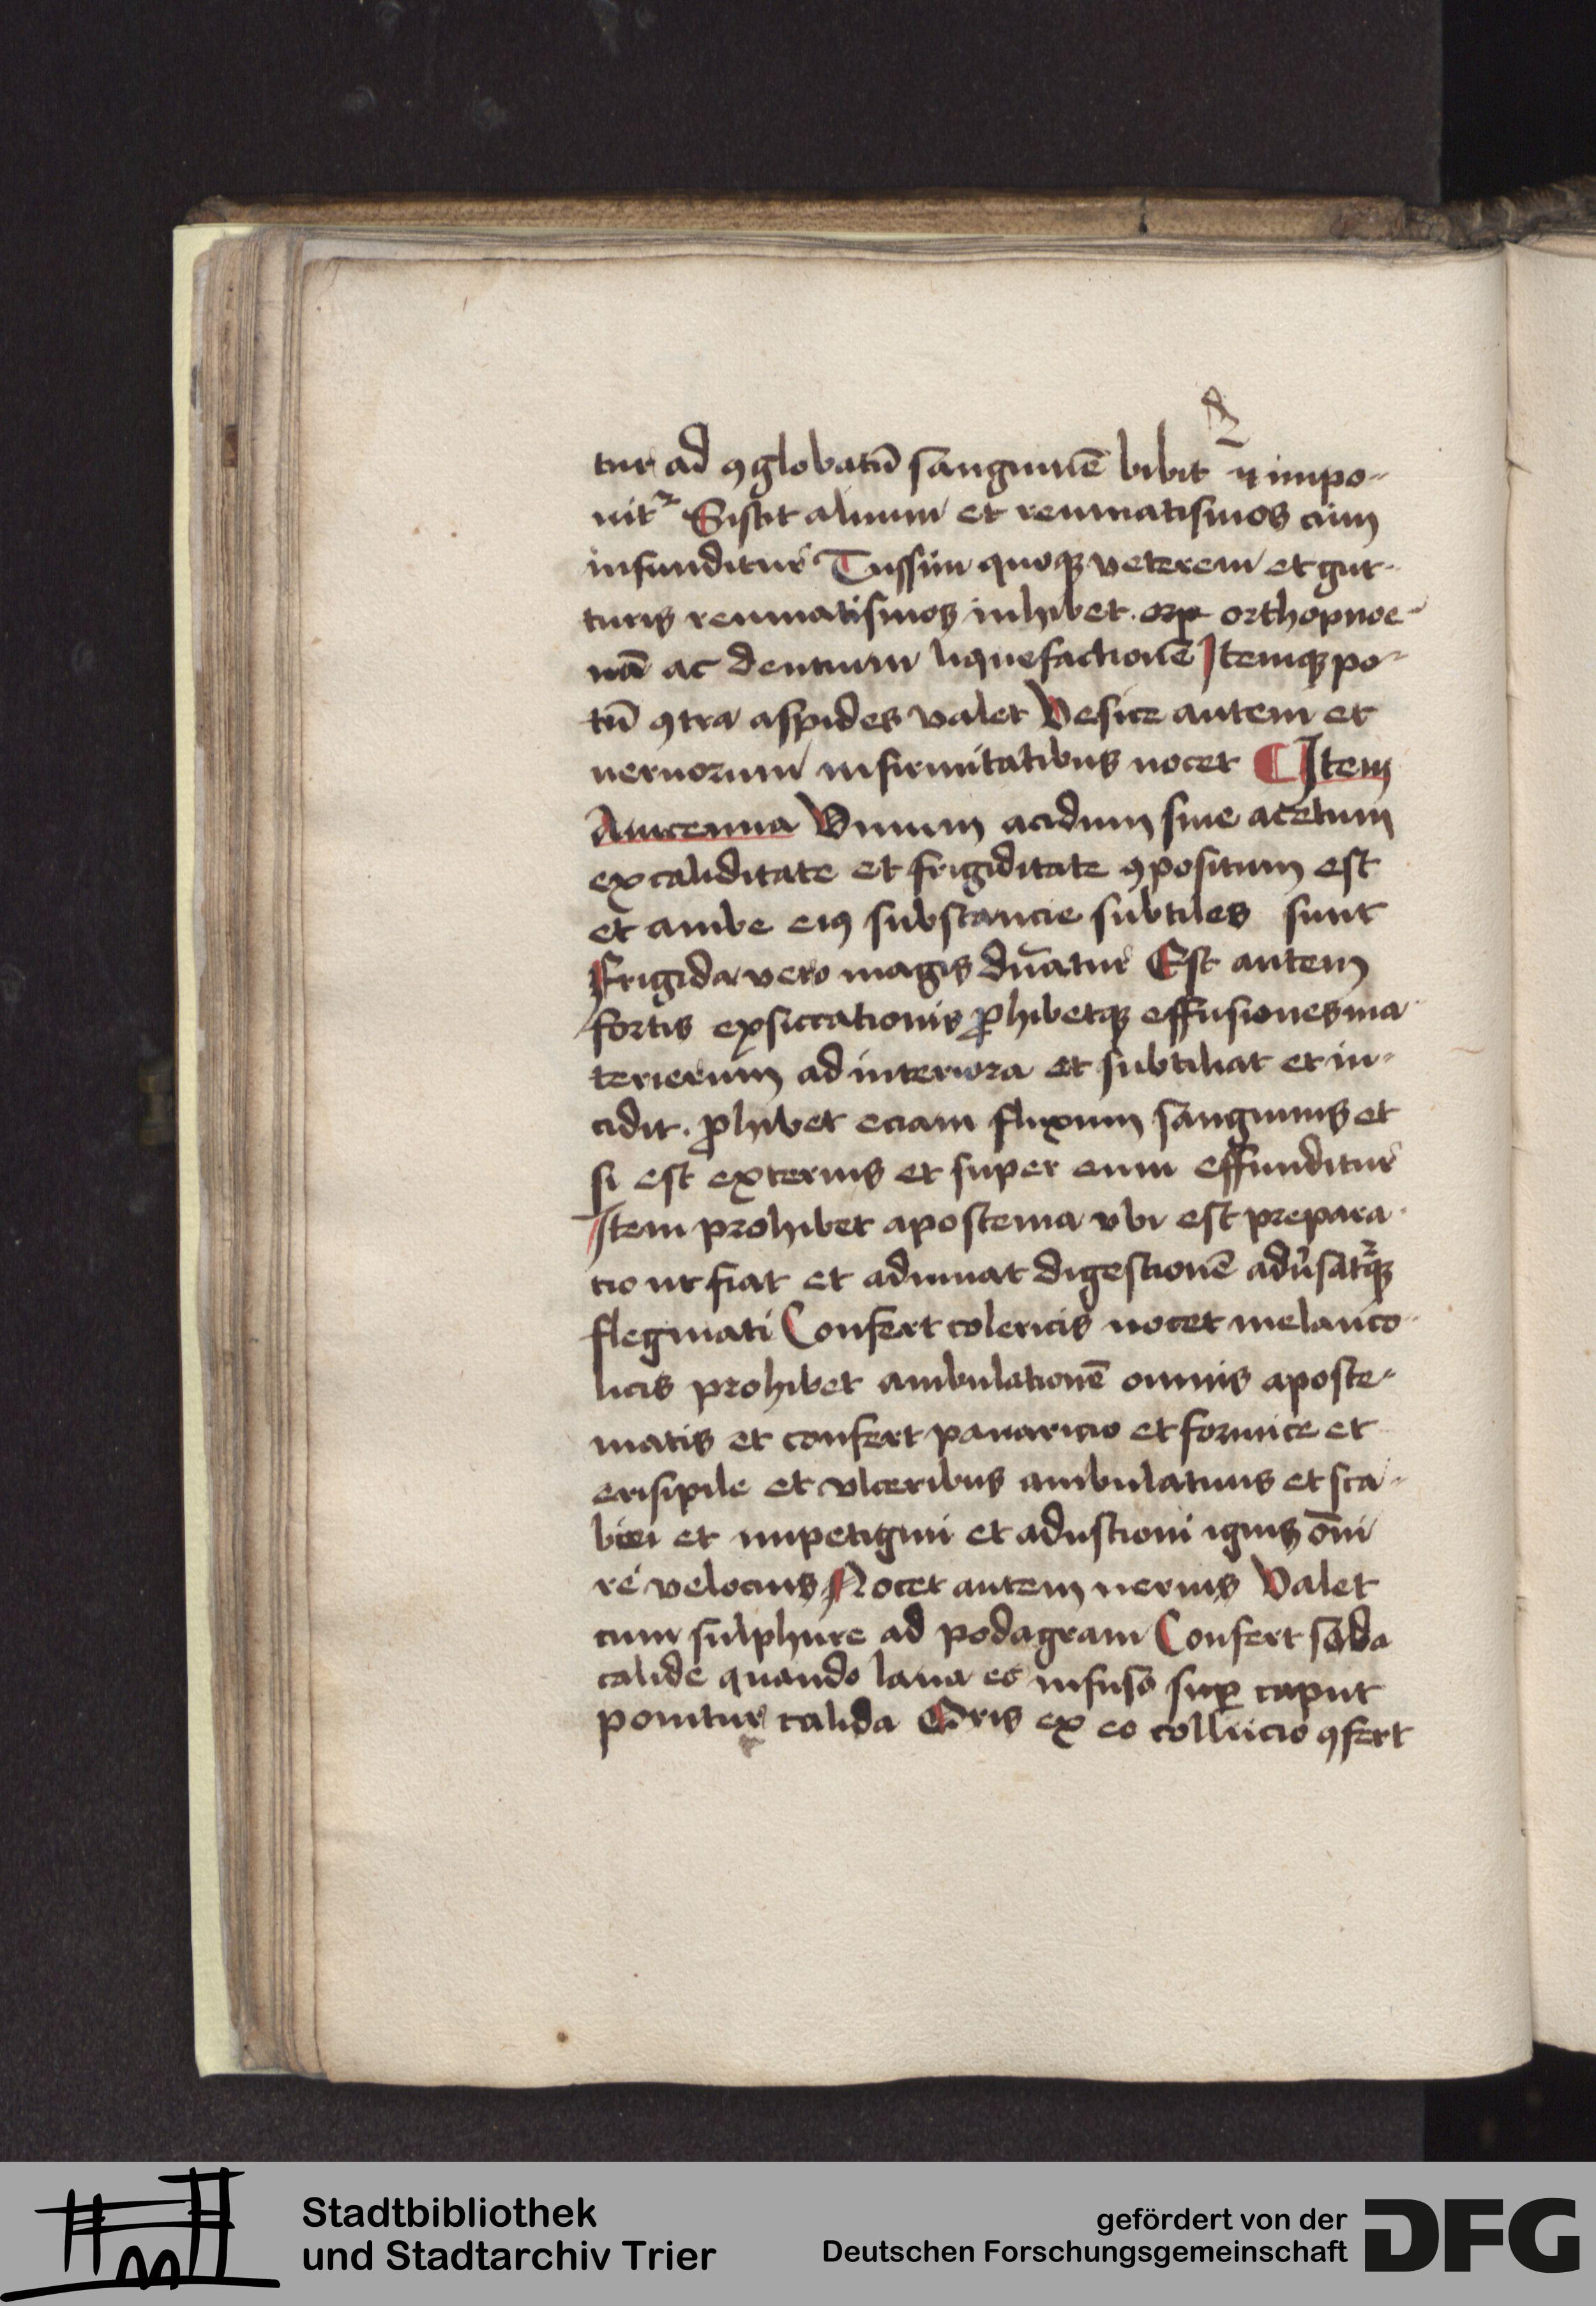 tur ad ꝯglobatū sanguinē bibit ⁊ impo-
nitᷣ Sistit aluum et reumatismos cum
infunditur Tussim quoqꝫ veterem et gut-
turis reumatismos inhibet. orp orthopnoe-
nā ac dentium liquefactionē Itemqꝫ po-
tū ꝯtra aspides valet Vesice autem et
neruorum infirmitatibus nocet ¶ Item
Auicenna Vinum acidum siue acetum
ex caliditate et frigiditate ꝯpositum est
et ambe eiꝰ substancie subtiles sunt
Frigida vero magis dn̄atur Est autem
fortis exsiccationis ꝓhibetqꝫ effusiones ma-
terierum ad interiora et subtiliat et in-
cidit. ꝓhibet eciam fluxum sanguinis et
si est exterius et super eum effunditur
Item prohibet apostema vbi est prepara-
tio ut fiat et adiuuat digestionē adũsatᷣqꝫ
flegmati Confert colericis nocet melanco-
licis prohibet ambulationē omnis aposte-
matis et confert panaricio et formice et
erisipile et vlceribus ambulatiuis et sca-
biei et impetigini et adustioni ignis om̄i
re velocius Nocet autem neruis Valet
cum sulphure ad podagram Confert soda
calide quando lana eo infuso suꝑ caput
ponitur calida Oris ex eo collucio ꝯfert
Stadtbibliothek
und Stadtarchiv Trier
gefördert von der
Deutschen Forschungsgemeinschaft
DFG